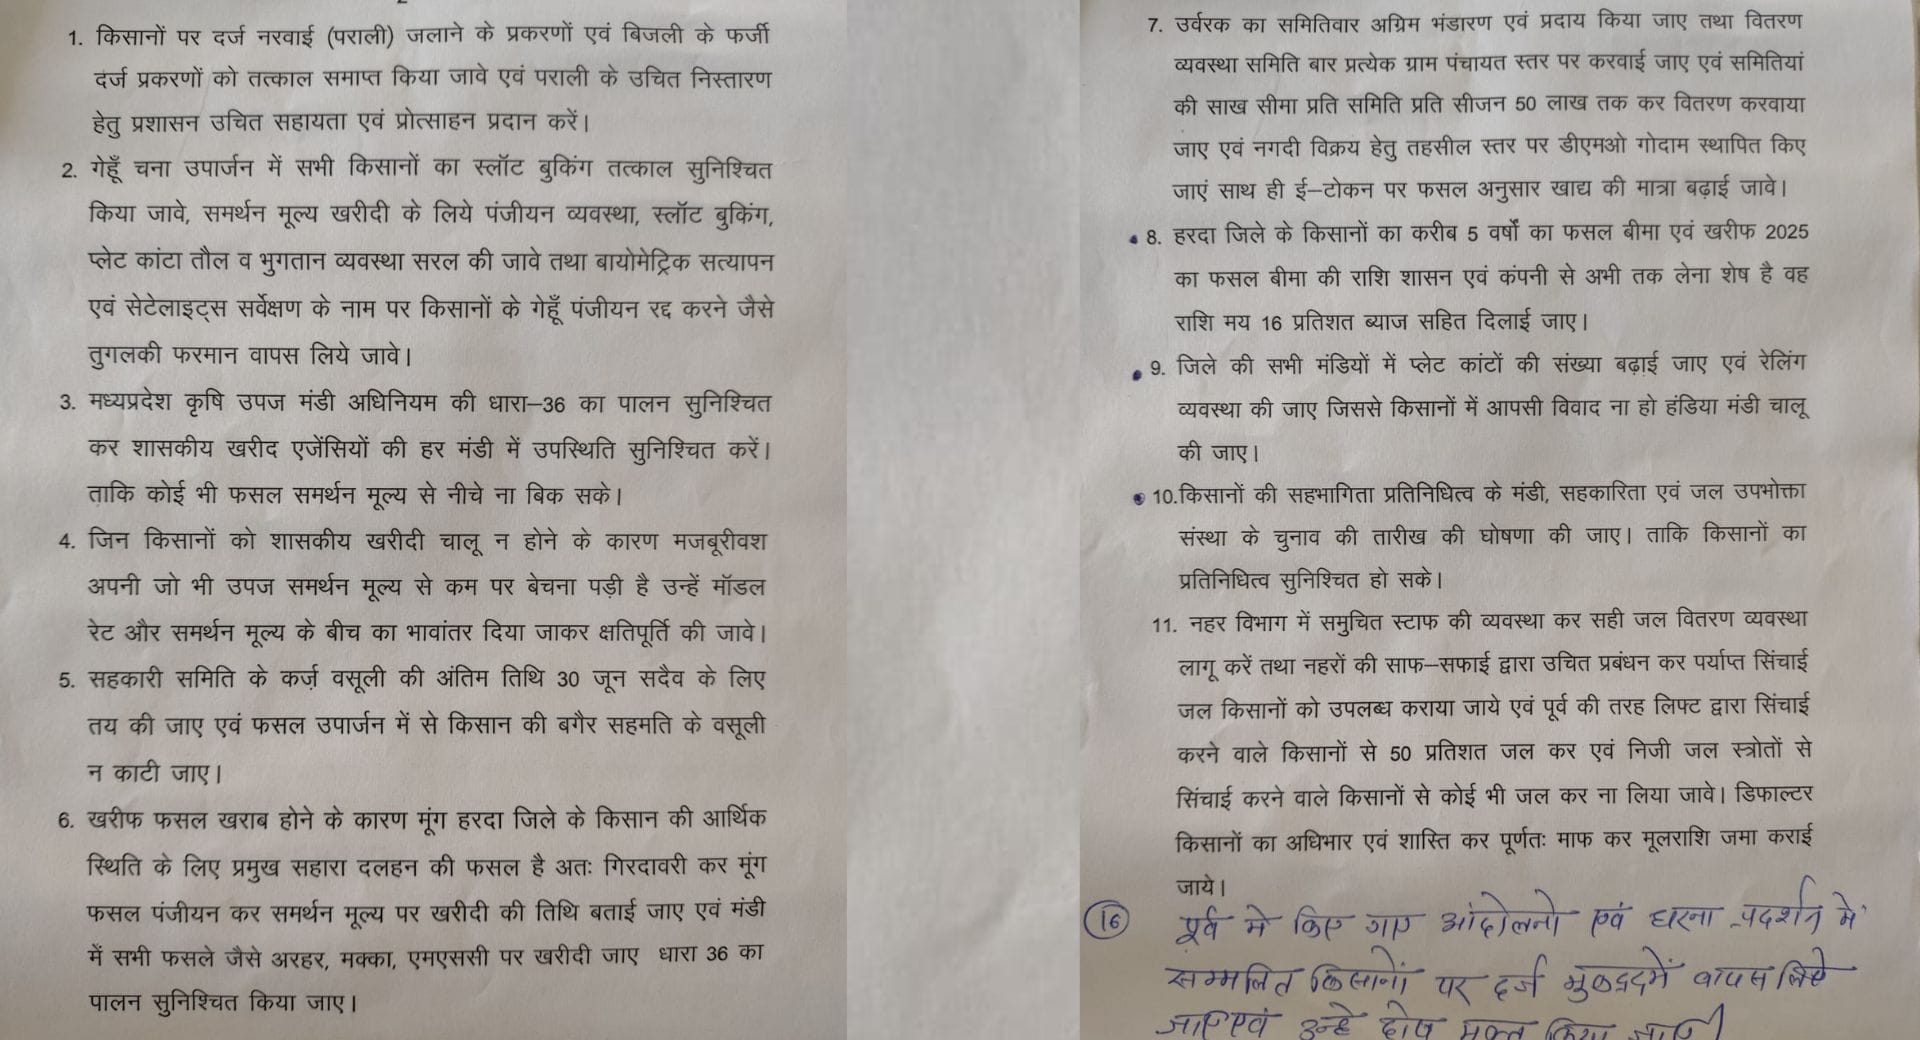 1. किसानों पर दर्ज नरवाई (पराली) जलाने के प्रकरणों एवं बिजली के फर्जी
दर्ज प्रकरणों को तत्काल समाप्त किया जावे एवं पराली के उचित निस्तारण
हेतु प्रशासन उचित सहायता एवं प्रोत्साहन प्रदान करें।
2. गेहूँ चना उपार्जन में सभी किसानों का स्लॉट बुकिंग तत्काल सुनिश्चित
किया जावे, समर्थन मूल्य खरीदी के लिये पंजीयन व्यवस्था, स्लॉट बुकिंग,
प्लेट कांटा तौल व भुगतान व्यवस्था सरल की जावे तथा बायोमेट्रिक सत्यापन
एवं सेटेलाइट्स सर्वेक्षण के नाम पर किसानों के गेहूँ पंजीयन रद्द करने जैसे
तुगलकी फरमान वापस लिये जावे।
3. मध्यप्रदेश कृषि उपज मंडी अधिनियम की धारा–36 का पालन सुनिश्चित
कर शासकीय खरीद एजेंसियों की हर मंडी में उपस्थिति सुनिश्चित करें।
ताकि कोई भी फसल समर्थन मूल्य से नीचे ना बिक सके।
4. जिन किसानों को शासकीय खरीदी चालू न होने के कारण मजबूरीवश
अपनी जो भी उपज समर्थन मूल्य से कम पर बेचना पड़ी है उन्हें मॉडल
रेट और समर्थन मूल्य के बीच का भावांतर दिया जाकर क्षतिपूर्ति की जावे।
5. सहकारी समिति के कर्ज़ वसूली की अंतिम तिथि 30 जून सदैव के लिए
तय की जाए एवं फसल उपार्जन में से किसान की बगैर सहमति के वसूली
न काटी जाए।
6. खरीफ फसल खराब होने के कारण मूंग हरदा जिले के किसान की आर्थिक
स्थिति के लिए प्रमुख सहारा दलहन की फसल है अतः गिरदावरी कर मूंग
फसल पंजीयन कर समर्थन मूल्य पर खरीदी की तिथि बताई जाए एवं मंडी
में सभी फसले जैसे अरहर, मक्का, एमएससी पर खरीदी जाए धारा 36 का
पालन सुनिश्चित किया जाए।
7. उर्वरक का समितिवार अग्रिम भंडारण एवं प्रदाय किया जाए तथा वितरण
व्यवस्था समिति बार प्रत्येक ग्राम पंचायत स्तर पर करवाई जाए एवं समितियां
की साख सीमा प्रति समिति प्रति सीजन 50 लाख तक कर वितरण करवाया
जाए एवं नगदी विक्रय हेतु तहसील स्तर पर डीएमओ गोदाम स्थापित किए
जाएं साथ ही ई–टोकन पर फसल अनुसार खाद्य की मात्रा बढ़ाई जावे।
8. हरदा जिले के किसानों का करीब 5 वर्षों का फसल बीमा एवं खरीफ 2025
का फसल बीमा की राशि शासन एवं कंपनी से अभी तक लेना शेष है वह
राशि मय 16 प्रतिशत ब्याज सहित दिलाई जाए।
9. जिले की सभी मंडियों में प्लेट कांटों की संख्या बढ़ाई जाए एवं रेलिंग
व्यवस्था की जाए जिससे किसानों में आपसी विवाद ना हो हंडिया मंडी चालू
की जाए।
10.किसानों की सहभागिता प्रतिनिधित्व के मंडी, सहकारिता एवं जल उपभोक्ता
संस्था के चुनाव की तारीख की घोषणा की जाए। ताकि किसानों का
प्रतिनिधित्व सुनिश्चित हो सके।
11. नहर विभाग में समुचित स्टाफ की व्यवस्था कर सही जल वितरण व्यवस्था
लागू करें तथा नहरों की साफ–सफाई द्वारा उचित प्रबंधन कर पर्याप्त सिंचाई
जल किसानों को उपलब्ध कराया जाये एवं पूर्व की तरह लिफ्ट द्वारा सिंचाई
करने वाले किसानों से 50 प्रतिशत जल कर एवं निजी जल स्त्रोतों से
सिंचाई करने वाले किसानों से कोई भी जल कर ना लिया जावे। डिफाल्टर
किसानों का अधिभार एवं शास्ति कर पूर्णतः माफ कर मूलराशि जमा कराई
जाये।
16 पूर्व मे किए गए आंदोलनो एवं धरना प्रदर्शन मे
सम्मलित किसानों पर दर्ज मुकद्दमें वापस लिये
जाए एवं उन्हे दोष मुक्त किया जाए।